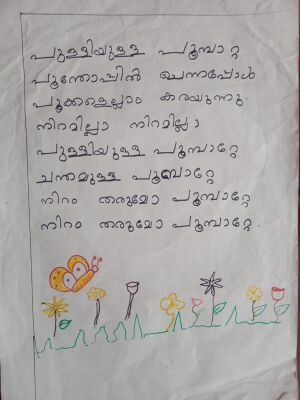 പുള്ളിയുള്ള പൂമ്പാറ്റ
പൂന്തോപ്പിൽ ചെന്നപ്പോൾ
പൂക്കളെല്ലാം കരയുന്നു.
നിറമില്ലാ നിറമില്ലാ
പുള്ളിയുള്ള പൂമ്പാറ്റേ
ചന്തമുള്ള പൂമ്പാറ്റേ
നിറം തരുമോ പൂമ്പാറ്റേ
നിറം തരുമോ പൂമ്പാറ്റേ.